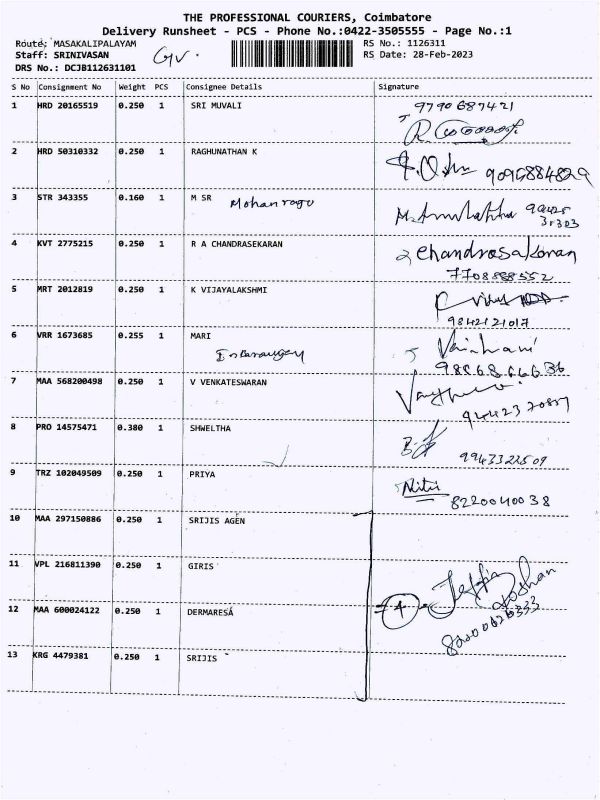 THE PROFESSIONAL COURIERS, Coimbatore
Delivery Runsheet - PCS - Phone No.:0422-3505555 - Page No.:1
Route: MASAKALIPALAYAM
RS No.: 1126311
Staff: SRINIVASAN
RS Date: 28-Feb-2023
DRS No.: DCJB112631101
S No Consignment No Weight PCS Consignee Details Signature
1 HRD 20165519 0.250 1 SRI MUVALI 9790687421
2 HRD 50310332 0.250 1 RAGHUNATHAN K 9096884829
3 STR 343355 0.160 1 M SR Mohan ragu
4 KVT 2775215 0.250 1 R A CHANDRASEKARAN Chandrasakaran
7708888552
5 MRT 2012819 0.250 1 K VIJAYALAKSHMI
9842121017
6 VRR 1673685 0.255 1 MARI
7 MAA 568200498 0.250 1 V VENKATESWARAN
8 PRO 14575471 0.380 1 SHWELTHA
9943322509
9 TRZ 102049509 0.250 1 PRIYA
8220040038
10 MAA 297150886 0.250 1 SRIJIS AGEN
11 VPL 216811390 0.250 1 GIRIS
12 MAA 600024122 0.250 1 DERMARESA 4
13 KRG 4479381 0.250 1 SRIJIS